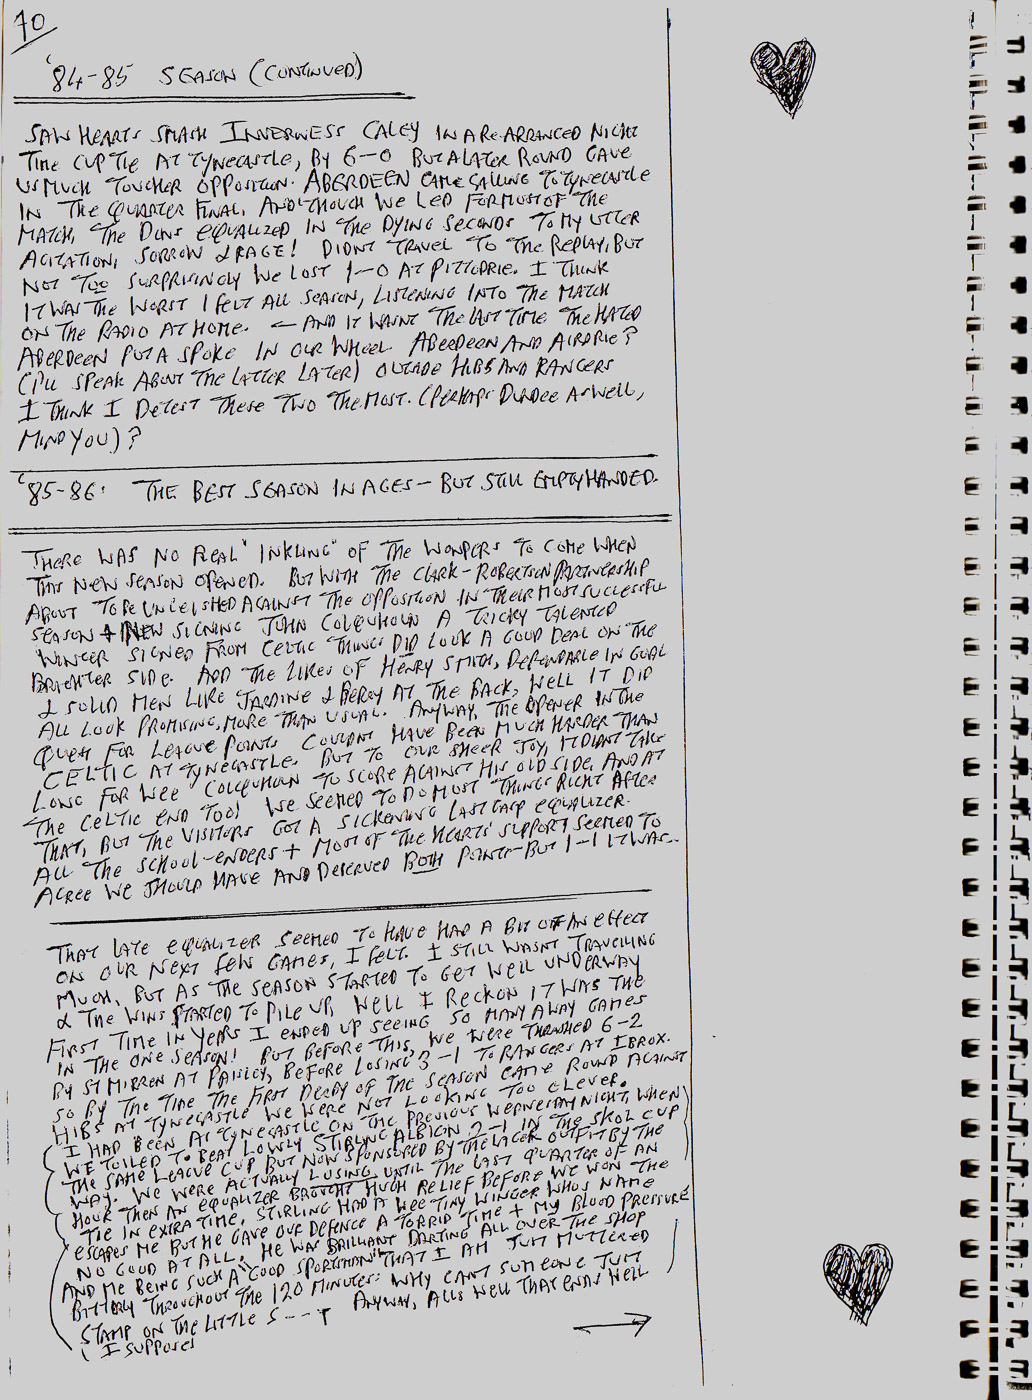 70
'84-85 SEASON (CONTINUED)
SAW HEARTS SMASH INVERNESS CALEY IN A RE-ARRANGED NIGHT
TIME CUP TIE AT TYNECASTLE, BY 6-0 BUT A LATER ROUND GAVE
US MUCH TOUGHER OPPOSITION. ABERDEEN CAME CALLING TO TYNECASTLE
IN THE QUARTER FINAL, AND THOUGH WE LED FOR MOST OF THE
MATCH, THE DONS EQUALIZED IN THE DYING SECONDS TO MY UTTER
AGITATION, SORROW & RAGE! DIDNT TRAVEL TO THE REPLAY, BUT
NOT TOO SURPRISINGLY WE LOST 1-0 AT PITTODRIE. I THINK
IT WAS THE WORST I FELT ALL SEASON, LISTENING INTO THE MATCH
ON THE RADIO AT HOME. - AND IT WASNT THE LAST TIME THE HATED
ABERDEEN PUT A SPOKE IN OUR WHEEL. ABERDEEN AND AIRDRIE?
(I'LL SPEAK ABOUT THE LATTER LATER) OUTSIDE HIBS AND RANGERS
I THINK I DETEST THESE TWO THE MOST. (PERHAPS DUNDEE AS WELL,
MIND YOU)?
'85-86: THE BEST SEASON IN AGES - BUT STILL EMPTYHANDED.
THERE WAS NO REAL "INKLING" OF THE WONDERS TO COME WHEN
THIS NEW SEASON OPENED. BUT WITH THE CLARK-ROBERTSON PARTNERSHIP
ABOUT TO BE UNLEISHED AGAINST THE OPPOSITION IN THEIR MOST SUCCESSFUL
SEASON + NEW SIGNING JOHN COLQUHOUN A TRICKY TALENTED
WINGER SIGNED FROM CELTIC THINGS DID LOOK A GOOD DEAL ON THE
BRIGHTER SIDE. ADD THE LIKES OF HENRY SMITH, DEPENDABLE IN GOAL
& SOLID MEN LIKE JARDINE & BERRY AT THE BACK, WELL IT DID
ALL LOOK PROMISING, MORE THAN USUAL. ANYWAY, THE OPENER IN THE
QUEST FOR LEAGUE POINTS COULDNT HAVE BEEN MUCH HARDER THAN
CELTIC AT TYNECASTLE. BUT TO OUR SHEER JOY, IT DIDNT TAKE
LONG FOR WEE COLQUHOUN TO SCORE AGAINST HIS OLD SIDE, AND AT
THE CELTIC END TOO! WE SEEMED TO DO MOST THINGS RIGHT AFTER
THAT, BUT THE VISITORS GOT A SICKENING LAST GASP EQUALIZER.
ALL THE SCHOOL-ENDERS + MOST OF THE HEARTS SUPPORT SEEMED TO
AGREE WE SHOULD HAVE AND DESERVED BOTH POINTS - BUT 1-1 IT WAS...
THAT LATE EQUALIZER SEEMED TO HAVE HAD A BIT OF AN EFFECT
ON OUR NEXT FEW GAMES, I FELT. I STILL WASNT TRAVELLING
MUCH, BUT AS THE SEASON STARTED TO GET WELL UNDERWAY
& THE WINS STARTED TO PILE UP, WELL I RECKON IT WAS THE
FIRST TIME IN YEARS I ENDED UP SEEING SO MANY AWAY GAMES
IN THE ONE SEASON! BUT BEFORE THIS, WE WERE THRASHED 6-2
BY ST MIRREN AT PAISLEY, BEFORE LOSING 3-1 TO RANGERS AT IBROX.
SO BY THE TIME THE FIRST DERBY OF THE SEASON CAME ROUND AGAINST
HIBS AT TYNECASTLE WE WERE NOT LOOKING TOO CLEVER.
(I HAD BEEN AT TYNECASTLE ON THE PREVIOUS WEDNESDAY NIGHT, WHEN
WE TOILED TO BEAT LOWLY STIRLING ALBION 2-1 IN THE SKOL CUP
THE SAME LEAGUE CUP BUT NOW SPONSORED BY THE LAGER OUTFIT BY THE
WAY. WE WERE ACTUALLY LOSING UNTIL THE LAST QUARTER OF AN
HOUR THEN AN EQUALIZER BROUGHT MUCH RELIEF BEFORE WE WON THE
TIE IN EXTRA TIME, STIRLING HAD A WEE TINY WINGER WHOS NAME
ESCAPES ME BUT HE GAVE OUR DEFENCE A TORRID TIME + MY BLOOD PRESSURE
NO GOOD AT ALL. HE WAS BRILLIANT DARTING ALL OVER THE SHOP
AND ME BEING SUCH A "GOOD SPORTSMAN" THAT I AM JUST MUTTERED
BITTERLY THROUGHOUT THE 120 MINUTES: WHY CANT SOMEONE JUST
STAMP ON THE LITTLE S---T ANYWAY, ALLS WELL THAT ENDS WELL
(I SUPPOSE)